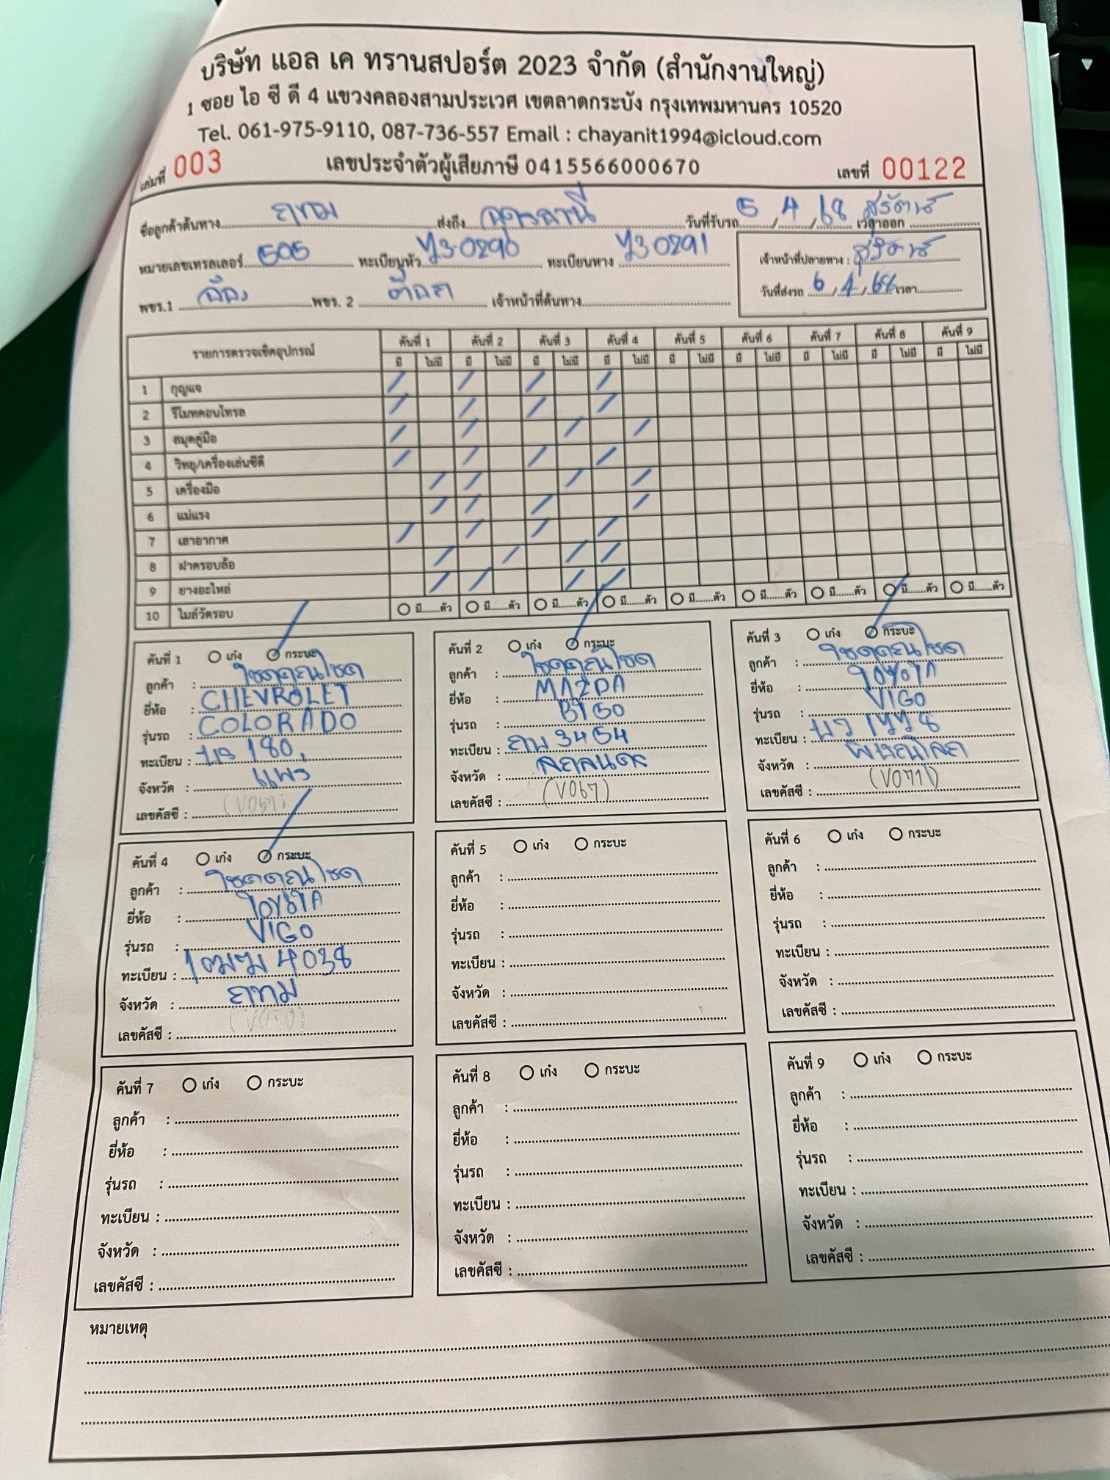 บริษัท แอล เค ทรานสปอร์ต 2023 จำกัด (สำนักงานใหญ่)
1 ซอย ไอ ซี ดี 4 แขวงคลองสามประเวศ เขตลาดกระบัง กรุงเทพมหานคร 10520
Tel. 061-975-9110, 087-736-557 Email : chayanit1994@icloud.com
เล่มที่ 003 เลขประจำตัวผู้เสียภาษี 0415566000670 เลขที่ 00122
ชื่อลูกค้าต้นทาง กทม ส่งถึง อุดรธานี วันที่รับรถ 5 / 4 / 68 เวลาออก สุรัตน์
หมายเลขเทรลเลอร์ 505 ทะเบียนหัว 73-0290 ทะเบียนหาง 73-0291 เจ้าหน้าที่ปลายทาง : สุรัตน์
พขร.1 พขร. 2 เจ้าหน้าที่ต้นทาง วันที่ส่งรถ 6 / 4 / 68 เวลา
รายการตรวจเช็คอุปกรณ์ คันที่ 1 คันที่ 2 คันที่ 3 คันที่ 4 คันที่ 5 คันที่ 6 คันที่ 7 คันที่ 8 คันที่ 9
มี ไม่มี มี ไม่มี มี ไม่มี มี ไม่มี มี ไม่มี มี ไม่มี มี ไม่มี มี ไม่มี มี ไม่มี
1 กุญแจ / / / /
2 รีโมทคอนโทรล / / / /
3 สมุดคู่มือ / / / /
4 วิทยุ/เครื่องเล่นซีดี / / / /
5 เครื่องมือ / / / /
6 แม่แรง / / / /
7 เสาอากาศ / / / /
8 ฝาครอบล้อ / / / /
9 ยางอะไหล่ / / / /
10 ไมล์วัดรอบ มี ตัว มี ตัว มี ตัว มี ตัว มี ตัว มี ตัว มี ตัว มี ตัว มี ตัว
คันที่ 1 เก๋ง กระบะ
ลูกค้า : โชคคูณโชค
ยี่ห้อ : CHEVROLET
รุ่นรถ : COLORADO
ทะเบียน : บธ 180
จังหวัด : แพร่
เลขคัสซี :
คันที่ 2 เก๋ง กระบะ
ลูกค้า : โชคคูณโชค
ยี่ห้อ : MAZDA
รุ่นรถ : BT50
ทะเบียน : 3454
จังหวัด : สกลนคร
เลขคัสซี : (V067)
คันที่ 3 เก๋ง กระบะ
ลูกค้า : โชคคูณโชค
ยี่ห้อ : TOYOTA
รุ่นรถ : VIGO
ทะเบียน : บว 1778
จังหวัด : พิษณุโลก
เลขคัสซี : (V071)
คันที่ 4 เก๋ง กระบะ
ลูกค้า : โชคคูณโชค
ยี่ห้อ : TOYOTA
รุ่นรถ : VIGO
ทะเบียน : 1ฒฆ 4038
จังหวัด : กทม
เลขคัสซี :
คันที่ 5 เก๋ง กระบะ
ลูกค้า :
ยี่ห้อ :
รุ่นรถ :
ทะเบียน :
จังหวัด :
เลขคัสซี :
คันที่ 6 เก๋ง กระบะ
ลูกค้า :
ยี่ห้อ :
รุ่นรถ :
ทะเบียน :
จังหวัด :
เลขคัสซี :
คันที่ 7 เก๋ง กระบะ
ลูกค้า :
ยี่ห้อ :
รุ่นรถ :
ทะเบียน :
จังหวัด :
เลขคัสซี :
คันที่ 8 เก๋ง กระบะ
ลูกค้า :
ยี่ห้อ :
รุ่นรถ :
ทะเบียน :
จังหวัด :
เลขคัสซี :
คันที่ 9 เก๋ง กระบะ
ลูกค้า :
ยี่ห้อ :
รุ่นรถ :
ทะเบียน :
จังหวัด :
เลขคัสซี :
หมายเหตุ